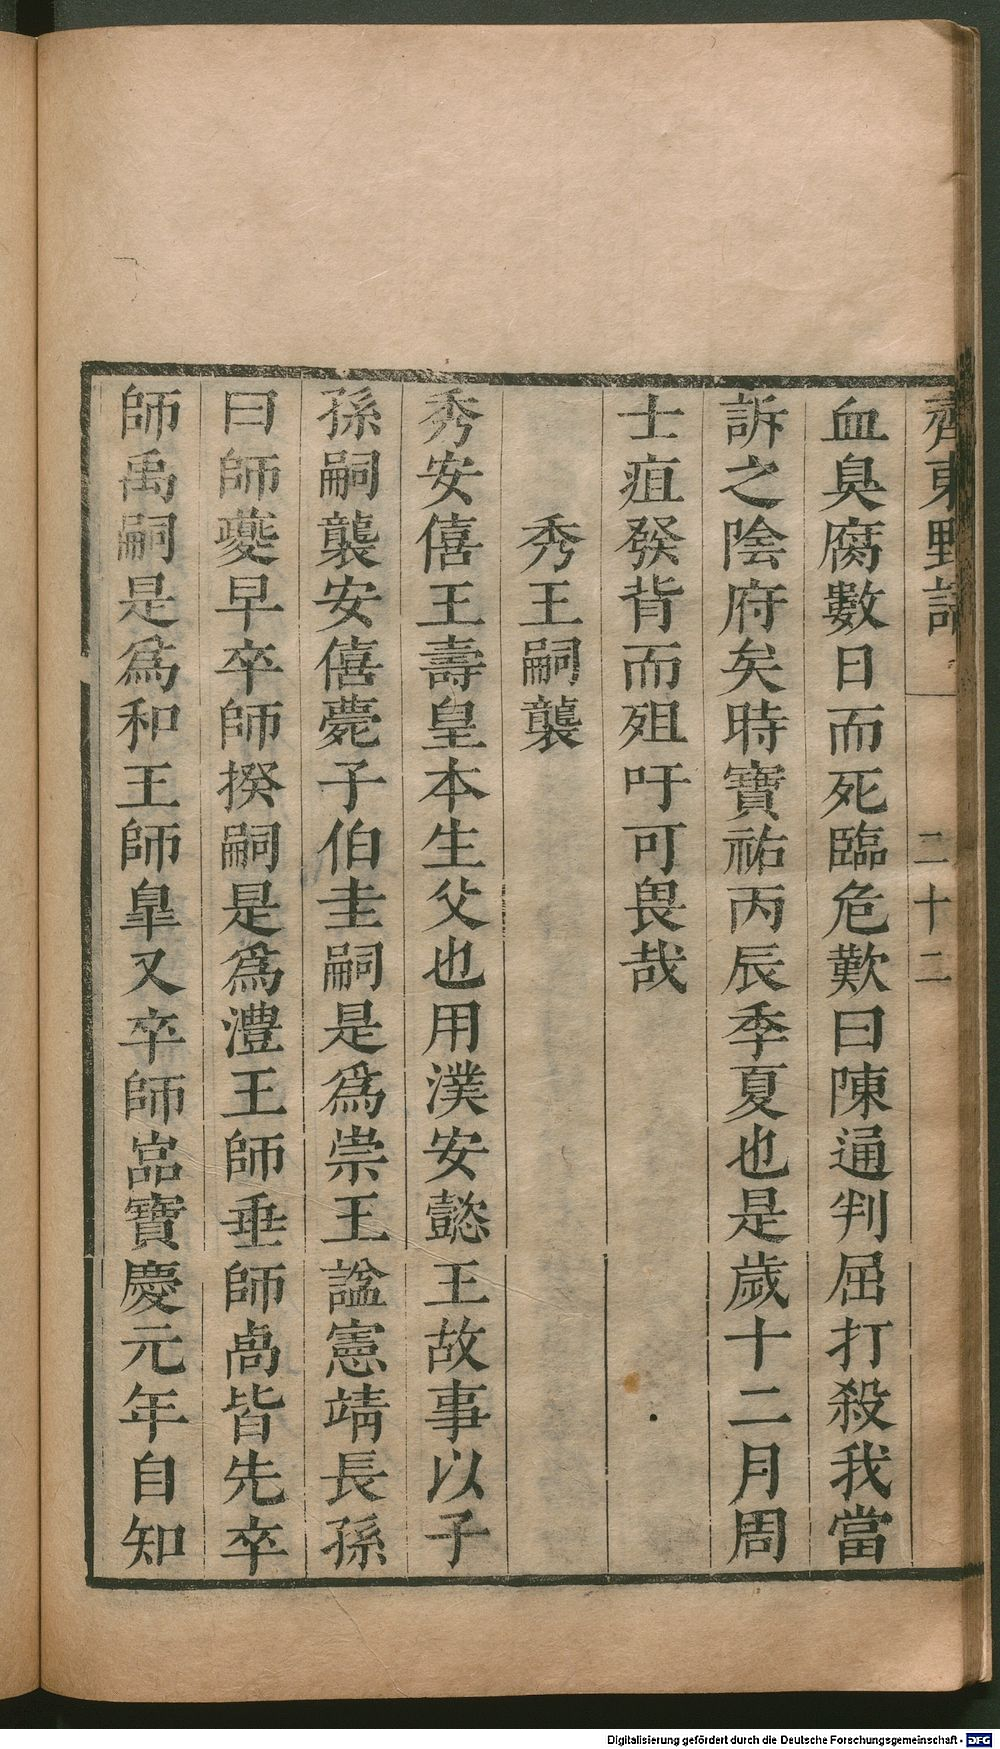 齊東野語
二十二
血臭腐數日而死臨危歎曰陳通判屈打殺我當
訴之陰府矣時寶祐丙辰季夏也是歲十二月周
士疽發背而殂吁可畏哉
秀王嗣襲
秀安僖王壽皇本生父也用濮安懿王故事以子
孫嗣襲安僖薨子伯圭嗣是爲崇王謚憲靖長孫
曰師夔早卒師揆嗣是爲澧王師垂師卨皆先卒
師禹嗣是爲和王師皐又卒師嵓寶慶元年自知
Digitalisierung gefördert durch die Deutsche Forschungsgemeinschaft - DFG